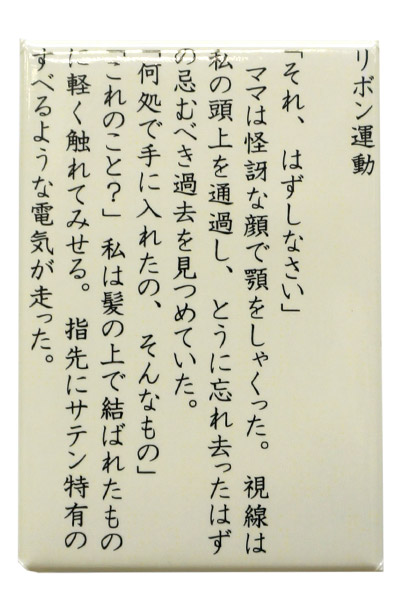 リボン運動
「それ、はずしなさい」
ママは怪訝な顔で顎をしゃくった。視線は
私の頭上を通過し、とうに忘れ去ったはず
の忌むべき過去を見つめていた。
「何処で手に入れたの、そんなもの」
「これのこと?」私は髪の上で結ばれたもの
に軽く触れてみせる。指先にサテン特有の
すべるような電気が走った。